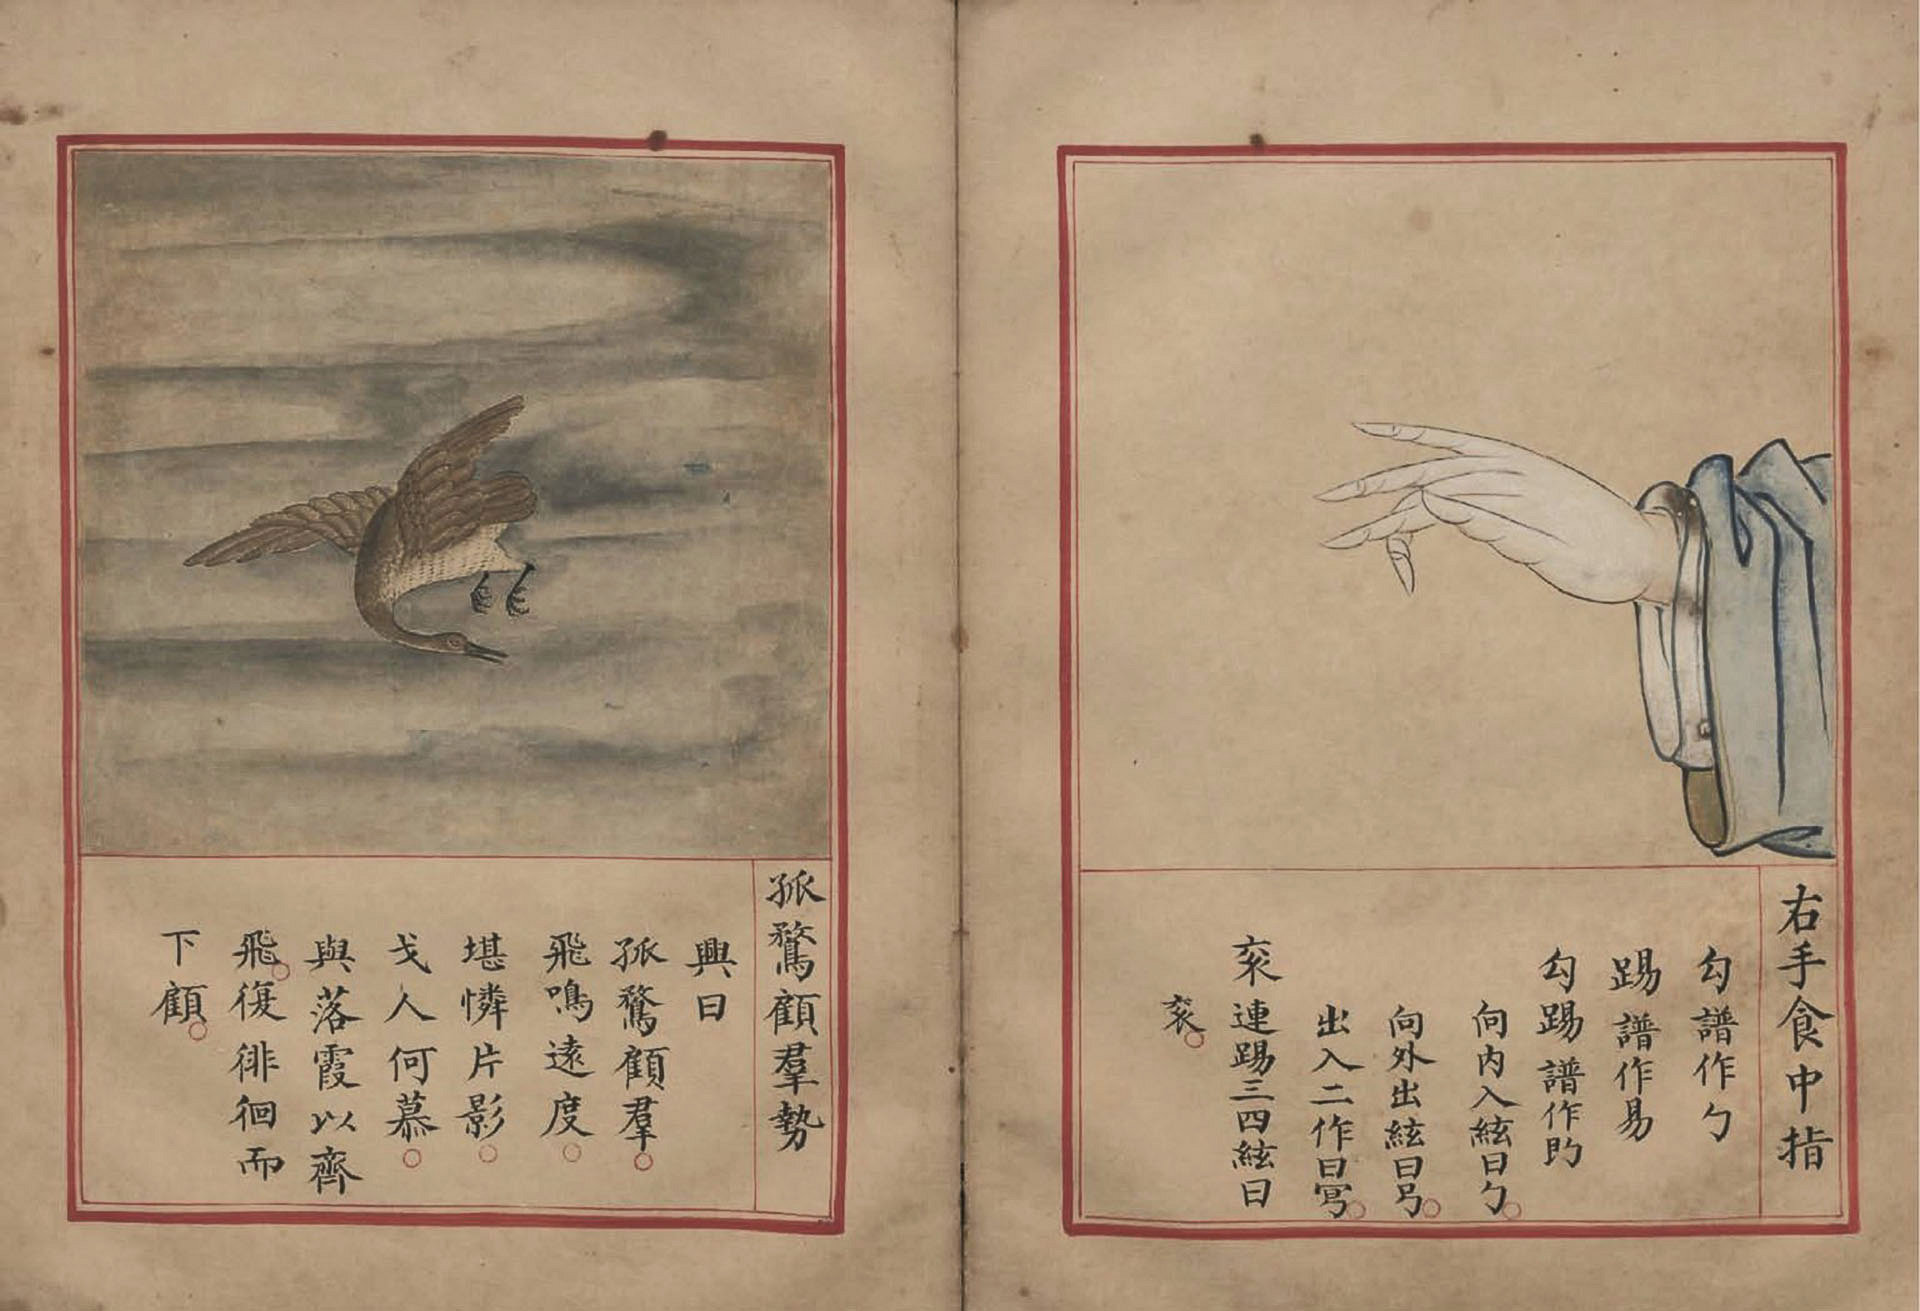 右手食中指
勾譜作勹
踢譜作易
勾踢譜作
向内入絃曰勹。
向外出絃曰
出入二作曰
衮連踢三四絃曰
衮。
孤鶩顧羣勢
興曰
孤鶩顧羣。
飛鳴遠度。
堪憐片影。
戈人何慕。
與落霞以齊
飛。復徘徊而
下顧。